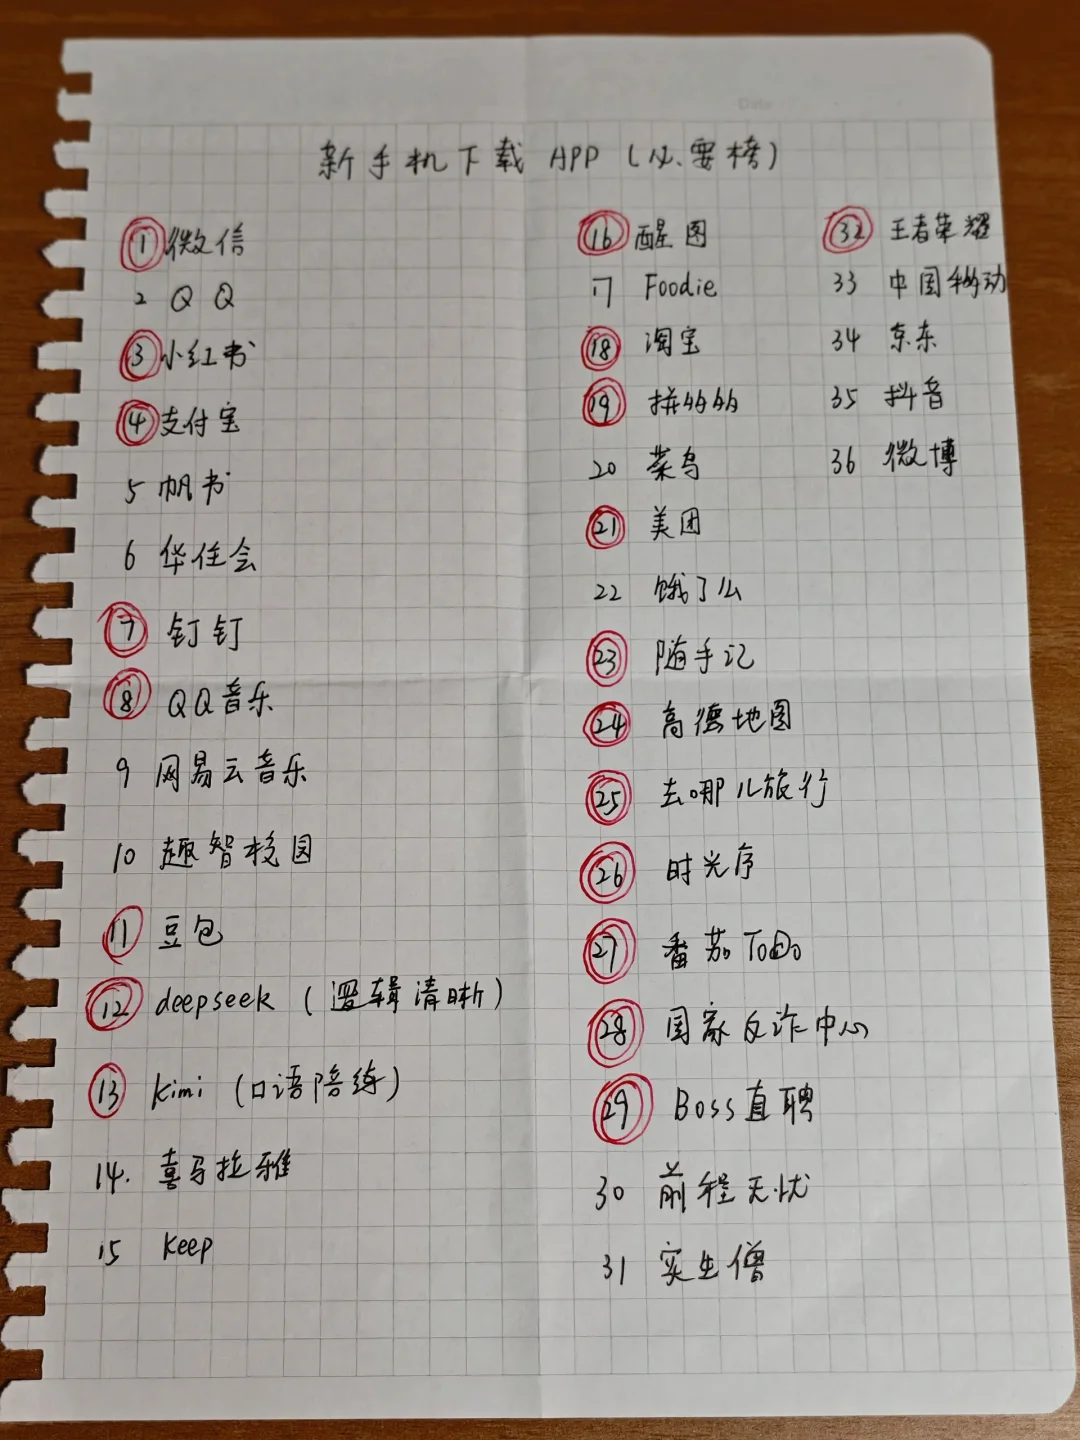 Date
新手机下载 APP (必要榜)
1 微信
2 QQ
3 小红书
4 支付宝
5 帆书
6 华住会
7 钉钉
8 QQ音乐
9 网易云音乐
10 趣智校园
11 豆包
12 deepseek (逻辑清晰)
13 kimi (口语陪练)
14. 喜马拉雅
15 keep
16 醒图
17 Foodie
18 淘宝
19 拼的的
20 菜鸟
21 美团
22 饿了么
23 随手记
24 高德地图
25 去哪儿旅行
26 时光序
27 番茄 ToDo
28 国家反诈中心
29 Boss直聘
30 前程无忧
31 实生僧
32 王者荣耀
33 中国移动
34 京东
35 抖音
36 微博